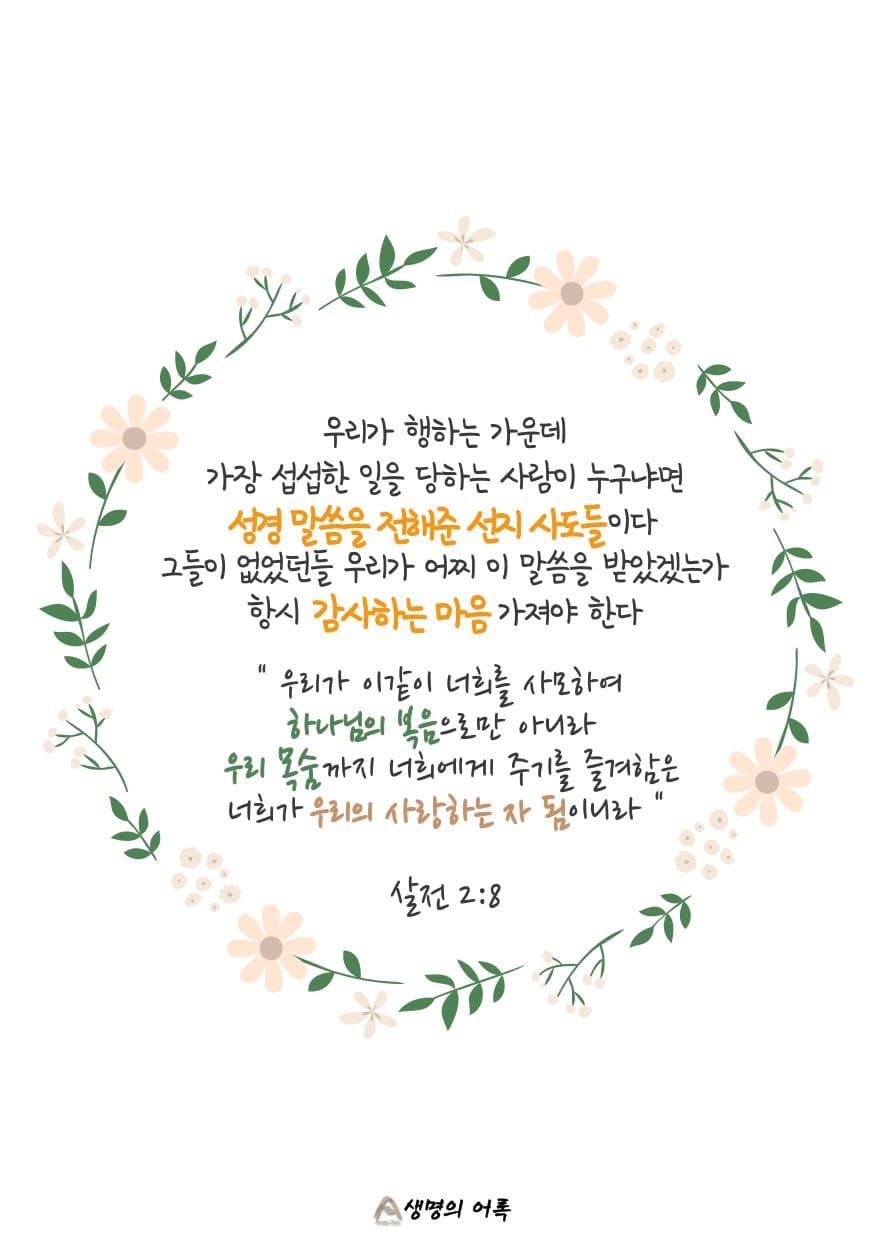 우리가 행하는 가운데
가장 섭섭한 일을 당하는 사람이 누구냐면
성경 말씀을 전해준 선지 사도들이다
그들이 없었던들 우리가 어찌 이 말씀을 받았겠는가
항시 감사하는 마음 가져야 한다
" 우리가 이같이 너희를 사모하여
하나님의 복음으로만 아니라
우리 목숨까지 너희에게 주기를 즐겨함은
너희가 우리의 사랑하는 자 됨이니라 "
살전 2:8
생명의 어록